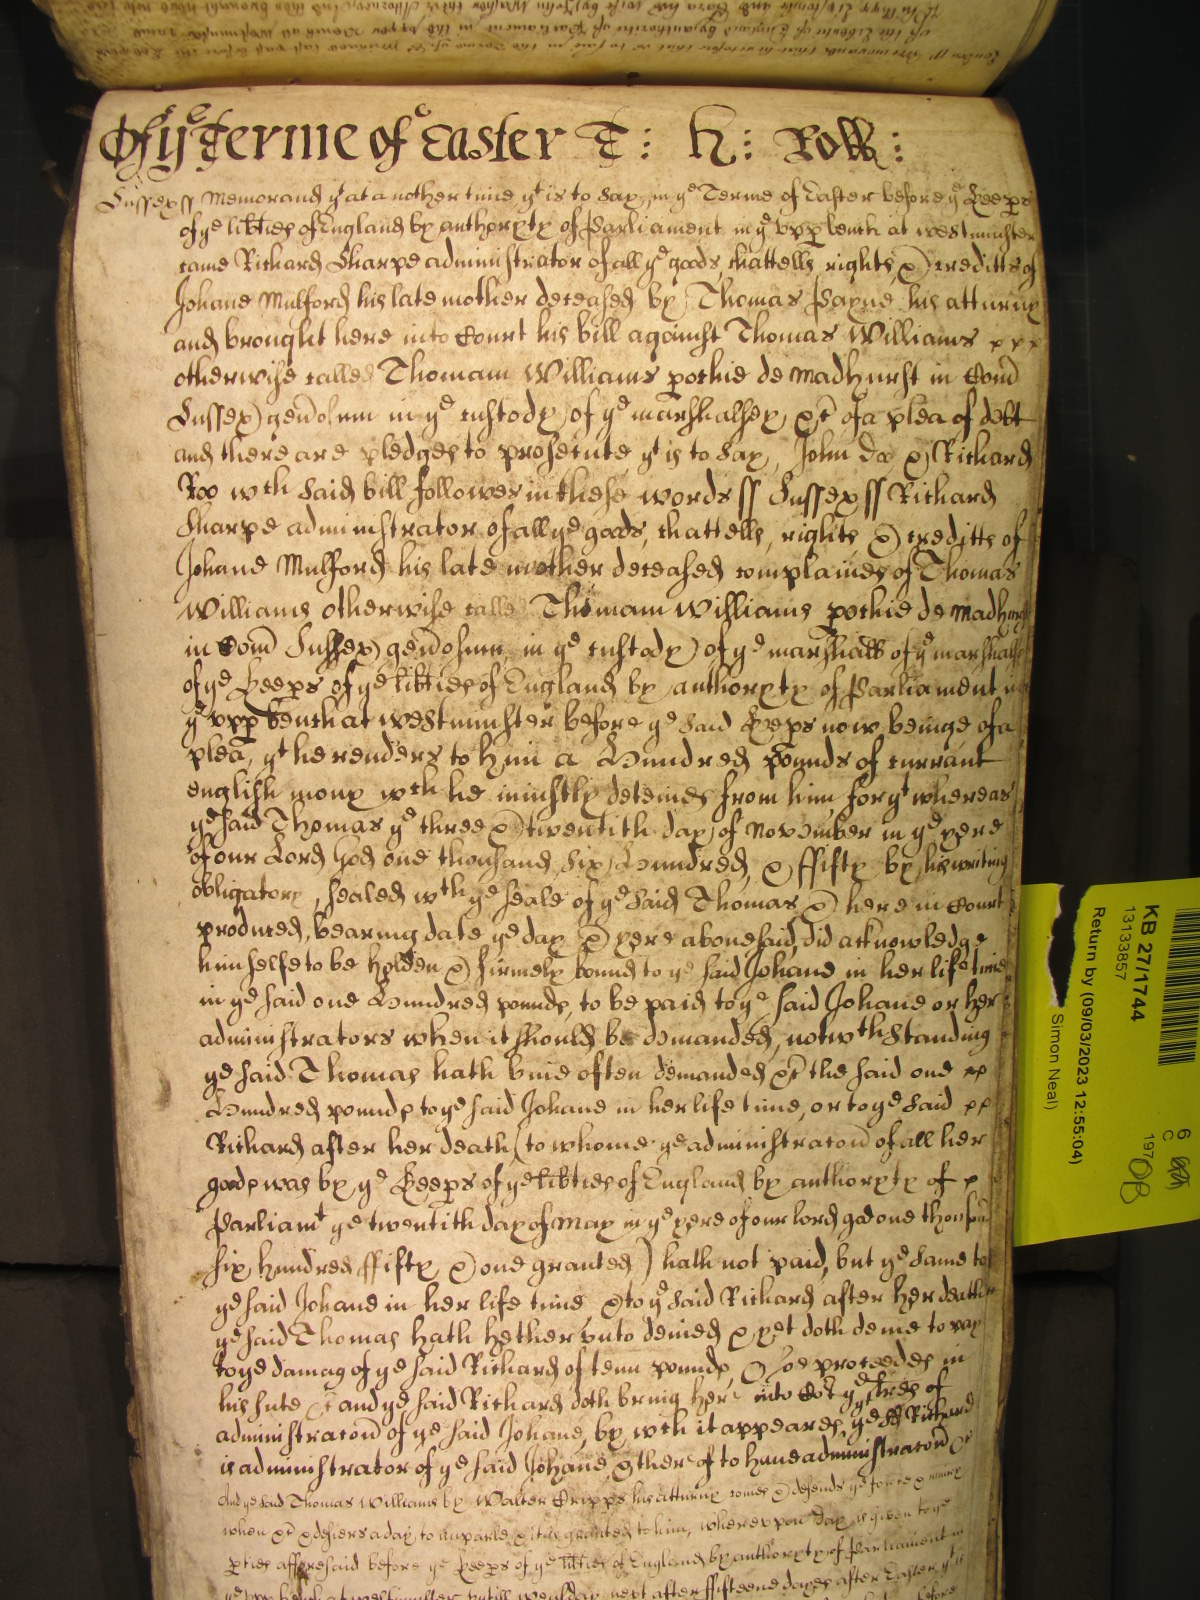 Of ye Terme of Easter T: H: Roll:
Sussex ss Memorand yt at a nother time yt is to say, in ye Terme of Easter before ye Keeps
of ye libties of England by authoryty of Parliament in ye vpp bench at westminster
came Richard Sharpe administrator of all ye goods, chattells, rights, & creditts of
Johane Mulford his late mother deceased by Thomas Payne his atturny
and brought here into Court his bill against Thomas Williams
otherwise called Thomam Williams pochie de Madhurst in Com
Sussex genosum in ye custody of ye marshalsey, &c of a plea of debt
and there are pledges to prosecute yt is to say, John Doo & Richard
Roo wch said bill followes in these words ss Sussex ss Richard
Sharpe administrator of all ye goods, chattells, rights, & creditts of
Johane Mulford his late mother deceased complaines of Thomas
Williams otherwise called Thomam Williams pochie de Madhurst
in Com Sussex genosum, in ye custody of ye marshall of ye marshalsey
of ye Keeps of ye libties of England by authoryty of Parliament in
ye vpp bench at westminster before ye said Keeps now beinge of a
plea, yt he renders to him a Hundred pounds of currant
english mony wch he iniustly deteines from him, for yt whereas
ye said Thomas ye three & twentith day of November in ye yere
of our Lord God one thousand six Hundred, & ffifty by his writing
obligatory, sealed wth ye seale of ye said Thomas & here in Court
produced, bearing date ye day & yere abouesaid, did acknowledge
himselfe to be holden & firmely bound to ye said Johane in her life time
in ye said one Hundred pounds, to be paid to ye said Johane or her
administrators when it should be demanded, notwthstanding
ye said Thomas hath bine often demanded &c the said one
Hundred pounds to ye said Johane in her life time, or to ye said
Richard after her death (to whome ye administracon of all her
goods was by ye Keeps of ye libties of England by authoryty of
Parliamt ye twentith day of May in ye yere of our lord god one thousand
six hundred ffifty & one granted) hath not paid, but ye same to
ye said Johane in her life time & to ye said Richard after her death
ye said Thomas hath hetherunto denied & yet doth denie to pay
to ye damag of ye said Richard of tenn pounds, & soe proceedes in
his sute &c and ye said Richard doth bring here into Cort ye lres of
administracon of ye said Johane, by wch it appeares, ye sd Richard
is administrator of ye said Johane, & thereof to haue administracon &c
And ye said Thomas Williams by Walter Cripps his atturny comes & defends ye force & iniury
when &c & desiers a day to imparle & it is granted to him, wherevpon day is given to ye
pties afforesaid before ye Keeps of ye libties of England by authoryty of Parliament in
ye vpp bench at westminster vntill wensday next after ffifteene dayes after Easter yt is
KB 27/1744
13133857
Return by (09/03/2023 12:55:04)
Simon Neal)
6
C